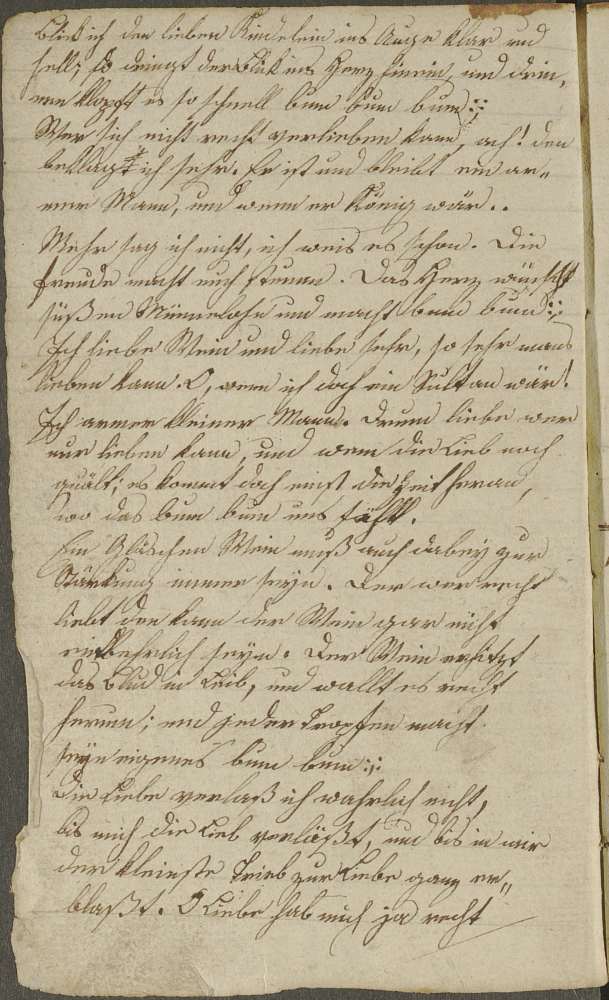 Blick ich den lieben Kindelein ins Auge klar und
hell; so dringt der Blick ins Herz hinein, und drin„
nen klopft es so schnell bum bum bum :;:
Wer sich nicht recht verlieben kann, ach! den
beklag ich sehr. Er ist und bleibt ein ar„
mer Mann, und wenn er König wär..
Mehr sag ich nicht, ich weis es schon. Die
Freude macht mich stumm. Das Herz wünscht
süßen Minnelohn und macht bum bum :;:
Ich liebe Wein und liebe sehr, so sehr mans
lieben kann. O, wenn ich doch ein Sultan wär!
Ich armer kleiner Mann. Drum liebe wer
nur lieben kann, und wenn die Lieb noch
quält; es kommt doch einst die Zeit heran,
wo das bum bum uns fehlt.
Ein Gläschen Wein muß auch dabey zur
Stärkung immer seyn. Der wer recht
liebt den kann der Wein gar nicht
entbehrlich seyn. Der Wein erhitzt
das Blud in Leib, und wallt es recht
herum; und jeder Tropfen macht
seyn eigenes bum bum :;:
Die Liebe verlaß ich wahrlich nicht,
bis mich die Lieb verläßt, und bis in mir
der kleinste Trieb zur Liebe ganz er„
blaßt. O Liebe hab mich ja recht